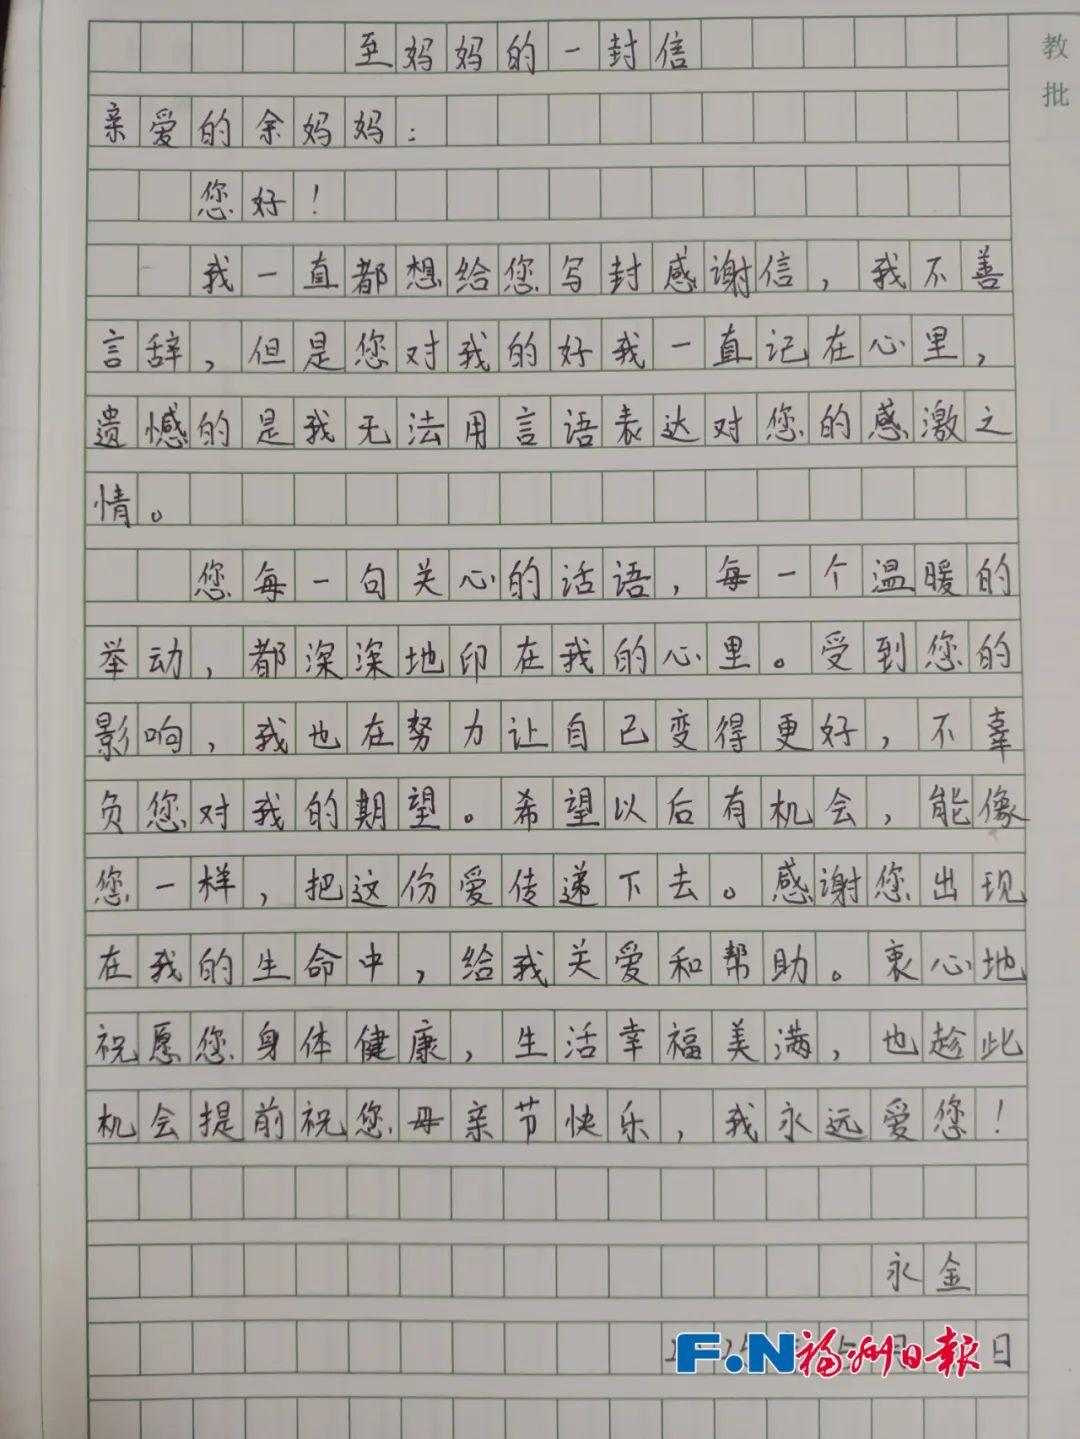 至妈妈的一封信
教
批
亲爱的余妈妈：
您好！
我一直都想给您写封感谢信，我不善
言辞，但是您对我的好我一直记在心里，
遗憾的是我无法用言语表达对您的感激之
情。
您每一句关心的话语，每一个温暖的
举动，都深深地印在我的心里。受到您的
影响，我也在努力让自己变得更好，不辜
负您对我的期望。希望以后有机会，能像
您一样，把这份爱传递下去。感谢您出现
在我的生命中，给我关爱和帮助。衷心地
祝愿您身体健康，生活幸福美满，也趁此
机会提前祝您母亲节快乐，我永远爱您！
永金
日
F.N福州日报